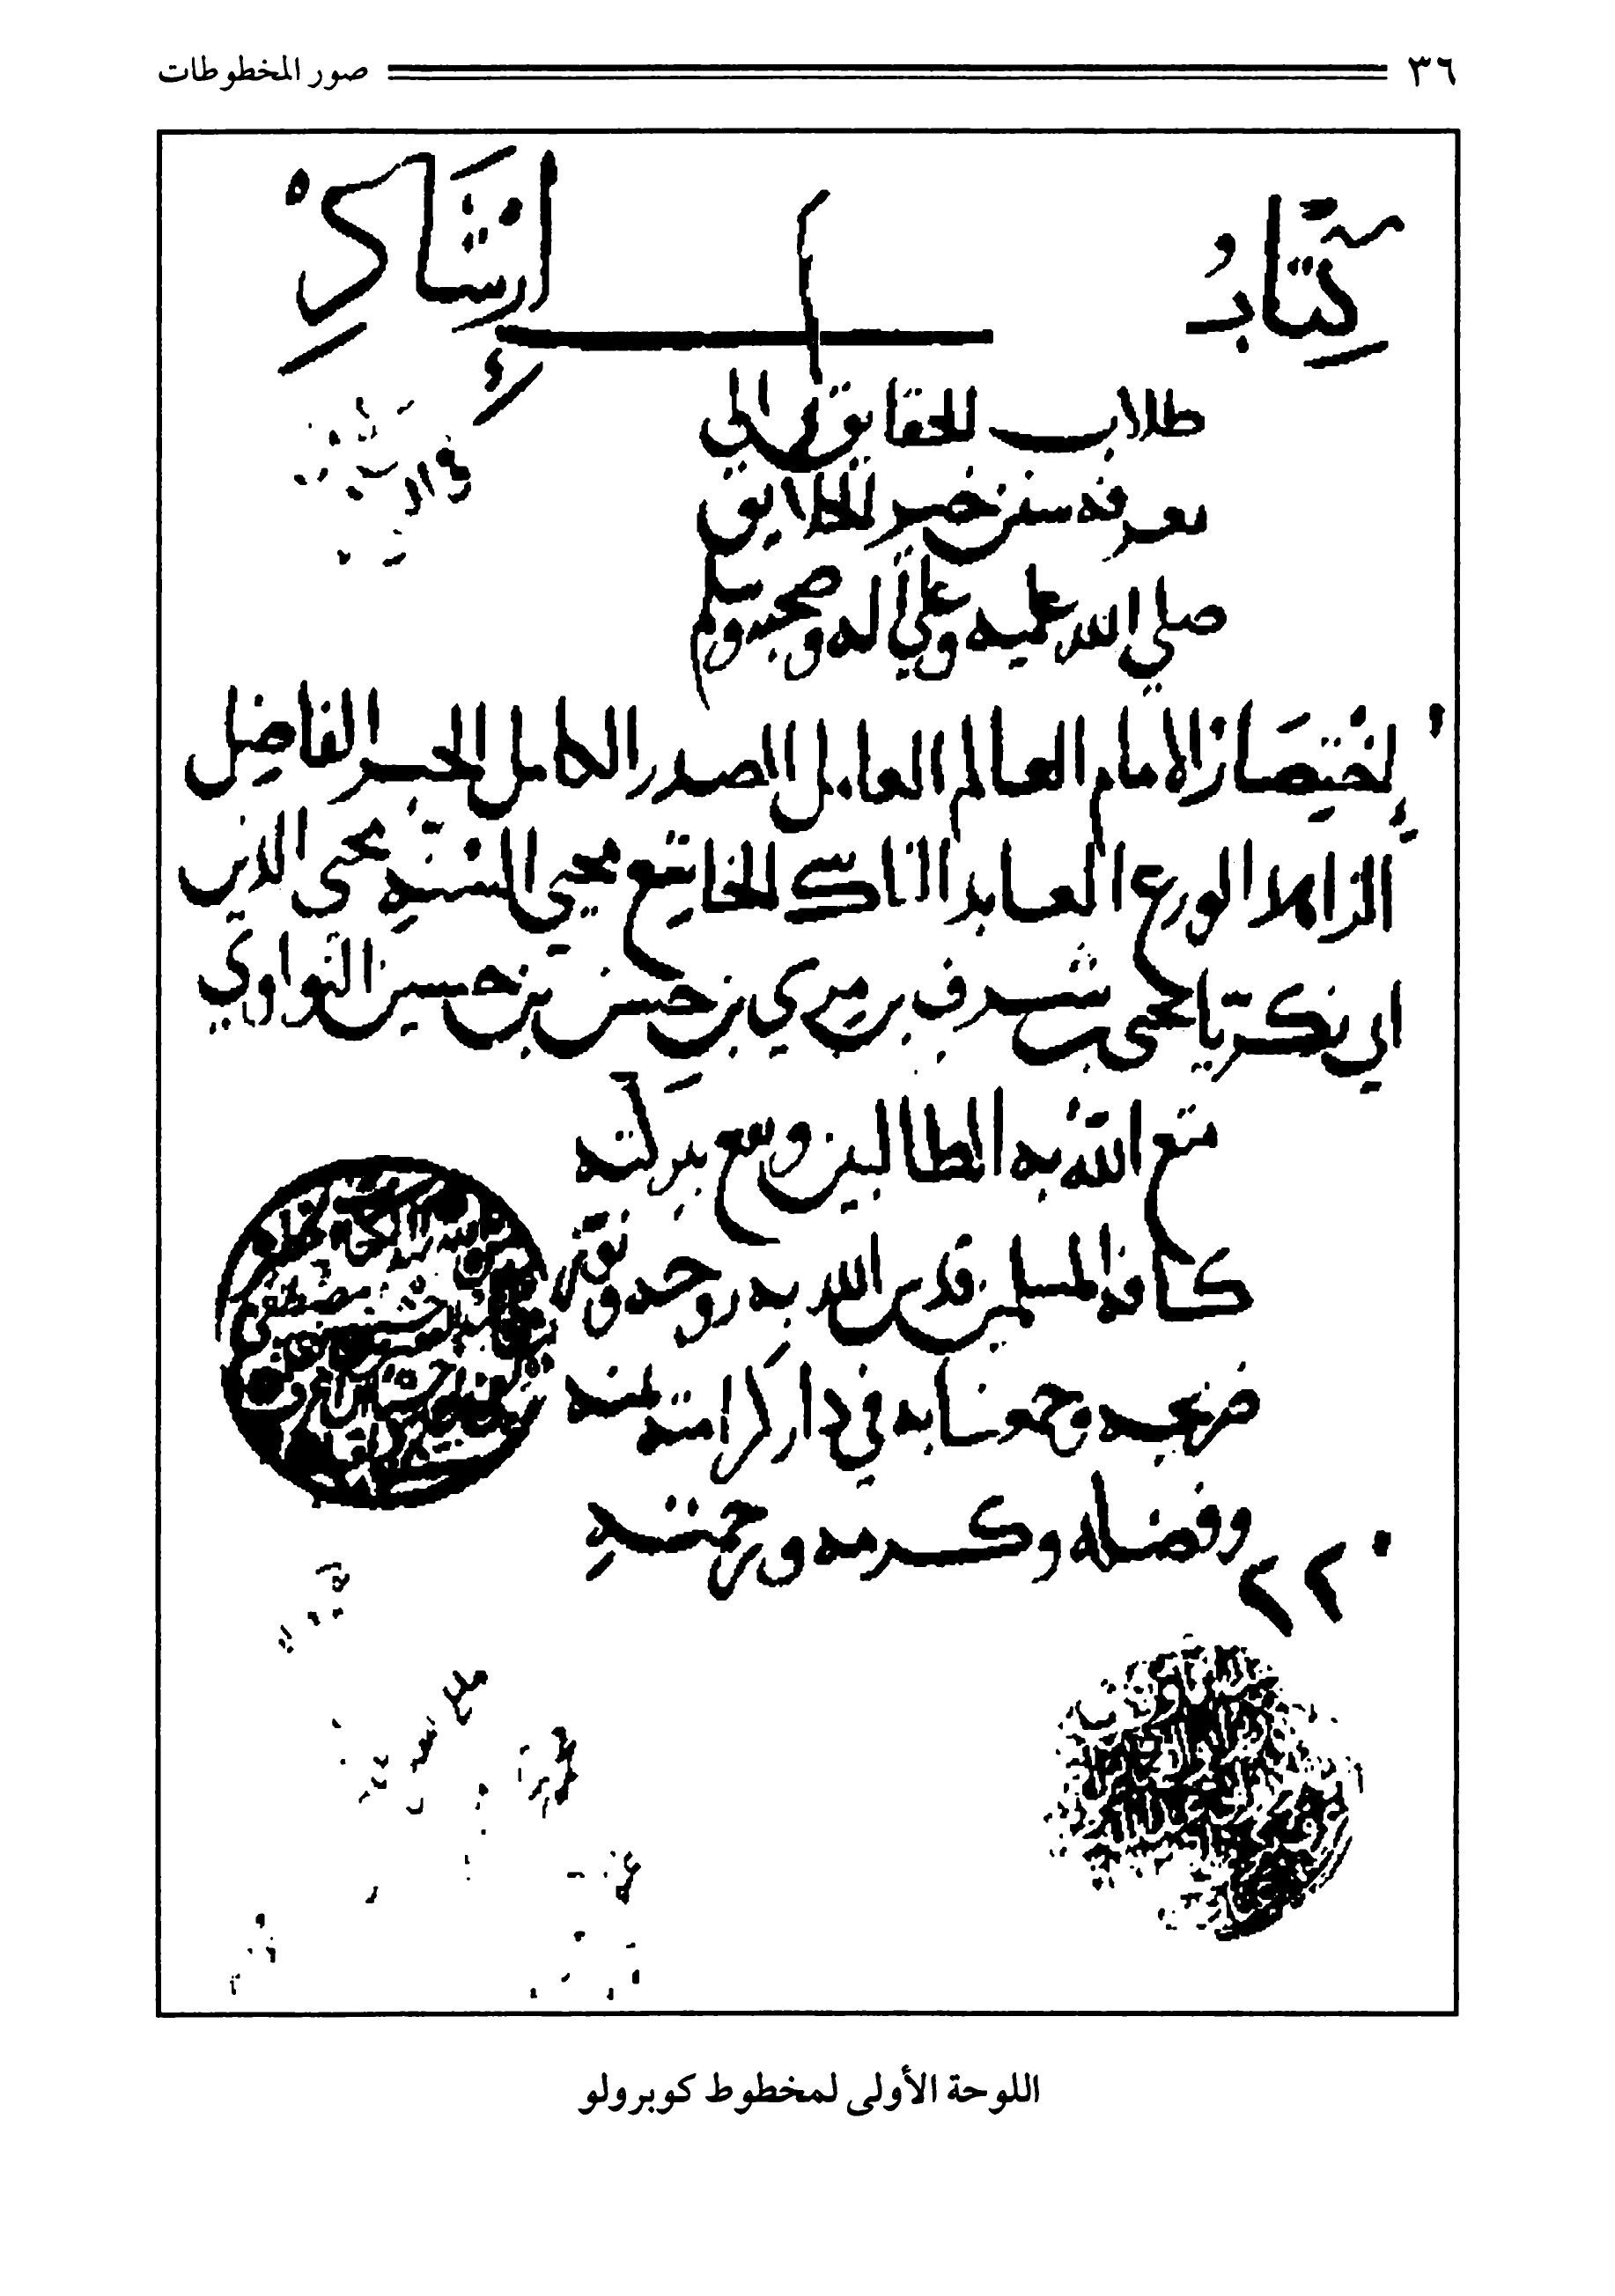 ٣٦ صور المخطوطات
كتاب إرشاد
طلاب الحقايق إلى
معرفة سنن خير الخلايق
صلى الله عليه وعلى اله وصحبه وسلم
اختصار الامام العالم العامل الصدر الكامل الحبر الفاضل
الزاهد الورع العابد الناسك الخاشع محيي السنة محيى الدين
ابي زكريا يحيى بن شرف بن مري بن حسن بن حسين النواوي
متع الله به الطالبين ووسع ببركته
كافة المسلمين قدس الله روحه ونور
ضريحه وجمعنا به في دار كرامته بمنه
وفضله وكرمه ورحمته
٢٢٠
اللوحة الأولى لمخطوط كوبرولو